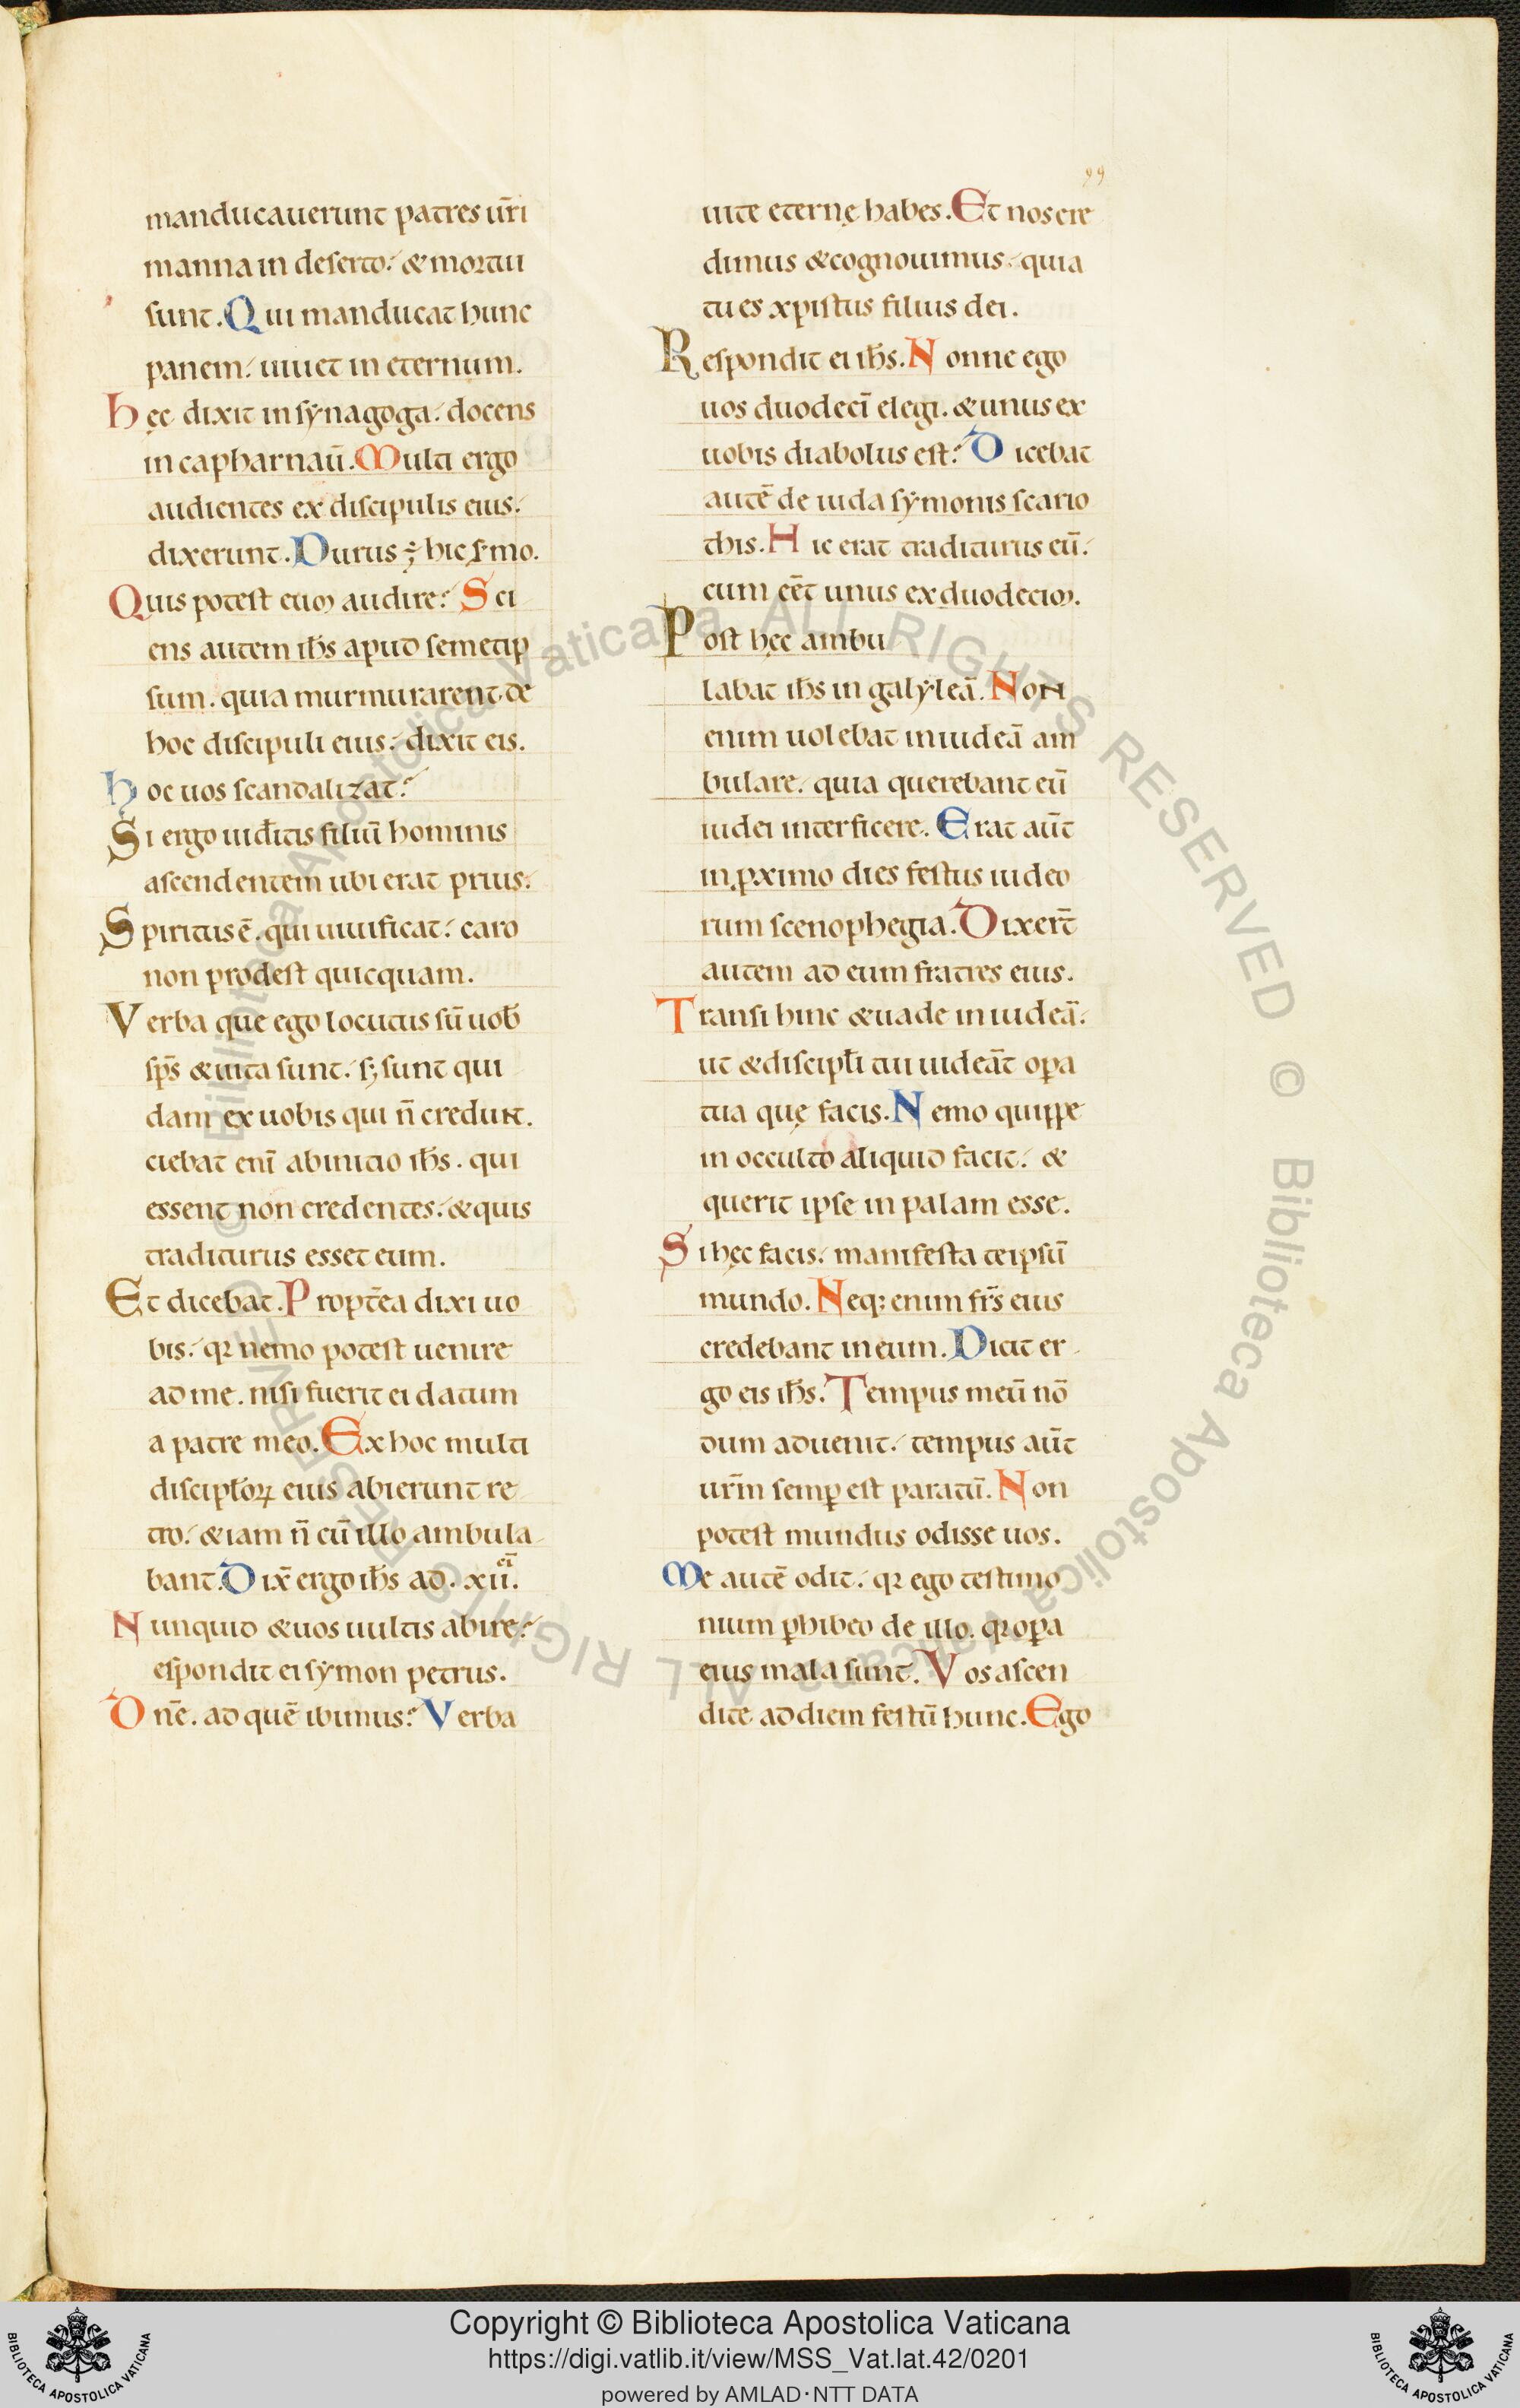 99
manducauerunt patres ur̄i
manna in deserto. & mortui
sunt. Qui manducat hunc
panem. uiuet in eternum.
Hęc dixit in synagoga. docens
in capharnaū. Multi ergo
audientes ex discipulis eius.
dixerunt. Durus ē hic s̄mo.
Quis potest eum audire? Sci
ens autem ihs̄ apud semetip
sum. quia murmurarent de
hoc discipuli eius. dixit eis.
Hoc uos scandalizat?
Si ergo uid̄itis filiū hominis
ascendentem ubi erat prius.
Spiritus ē. qui uiuificat. caro
non prodest quicquam.
Verba que ego locutus sū uob̄
sp̄s & uita sunt. s; sunt qui
dam ex uobis qui n̄ credunt.
ciebat enī ab initio ihs̄. qui
essent non credentes. & quis
traditurus esset eum.
Et dicebat. Propt̄ea dixi uo
bis. qꝛ nemo potest uenire
ad me. nisi fuerit ei datum
a patre meo. Ex hoc multi
discipl̄oꝝ eius abierunt re
tro. & iam n̄ cū illo ambula
bant. Dix̄ ergo ihs̄ ad. xii.
Nunquid & uos uultis abire?
espondit ei symon petrus.
Dn̄e. ad quē ibimus? Verba
uite eternę habes. Et nos cre
dimus & cognouimus. quia
tu es xpistus filius dei.
Respondit ei ihs̄. Nonne ego
uos duodecī elegi. & unus ex
uobis diabolus est? Dicebat
autē de iuda symonis scario
this. Hic erat traditurus eū.
cum ēet unus ex duodecim.
Post hęc ambu
labat ihs̄ in galyleā. Non
enim uolebat in iudeā am
bulare. quia querebant eū
iudei interficere. Erat aūt
in ꝓximo dies festus iudeo
rum scenophegia. Dixer̄t
autem ad eum fratres eius.
Transi hinc & uade in iudeā.
ut & discipl̄i tui uideāt oꝑa
tua quę facis. Nemo quippe
in occulto aliquid facit. &
querit ipse in palam esse.
Si hęc facis. manifesta teipsū
mundo. Neq; enim fr̄s eius
credebant in eum. Dicit er
go eis ihs̄. Tempus meū nō
dum aduenit. tempus aūt
ur̄m semꝑ est paratū. Non
potest mundus odisse uos.
Me autē odit. qꝛ ego testimo
nium ꝑhibeo de illo. qꝛ oꝑa
eius mala sunt. Vos ascen
dite ad diem festū hunc. Ego
Copyright © Biblioteca Apostolica Vaticana
https://digi.vatlib.it/view/MSS_Vat.lat.42/0201
powered by AMLAD·NTT DATA
BIBLIOTECA APOSTOLICA VATICANA
BIBLIOTECA APOSTOLICA VATICANA
© Biblioteca Apostolica Vaticana ALL RIGHTS RESERVED © Biblioteca Apostolica Vaticana ALL RIGHTS RESERVED